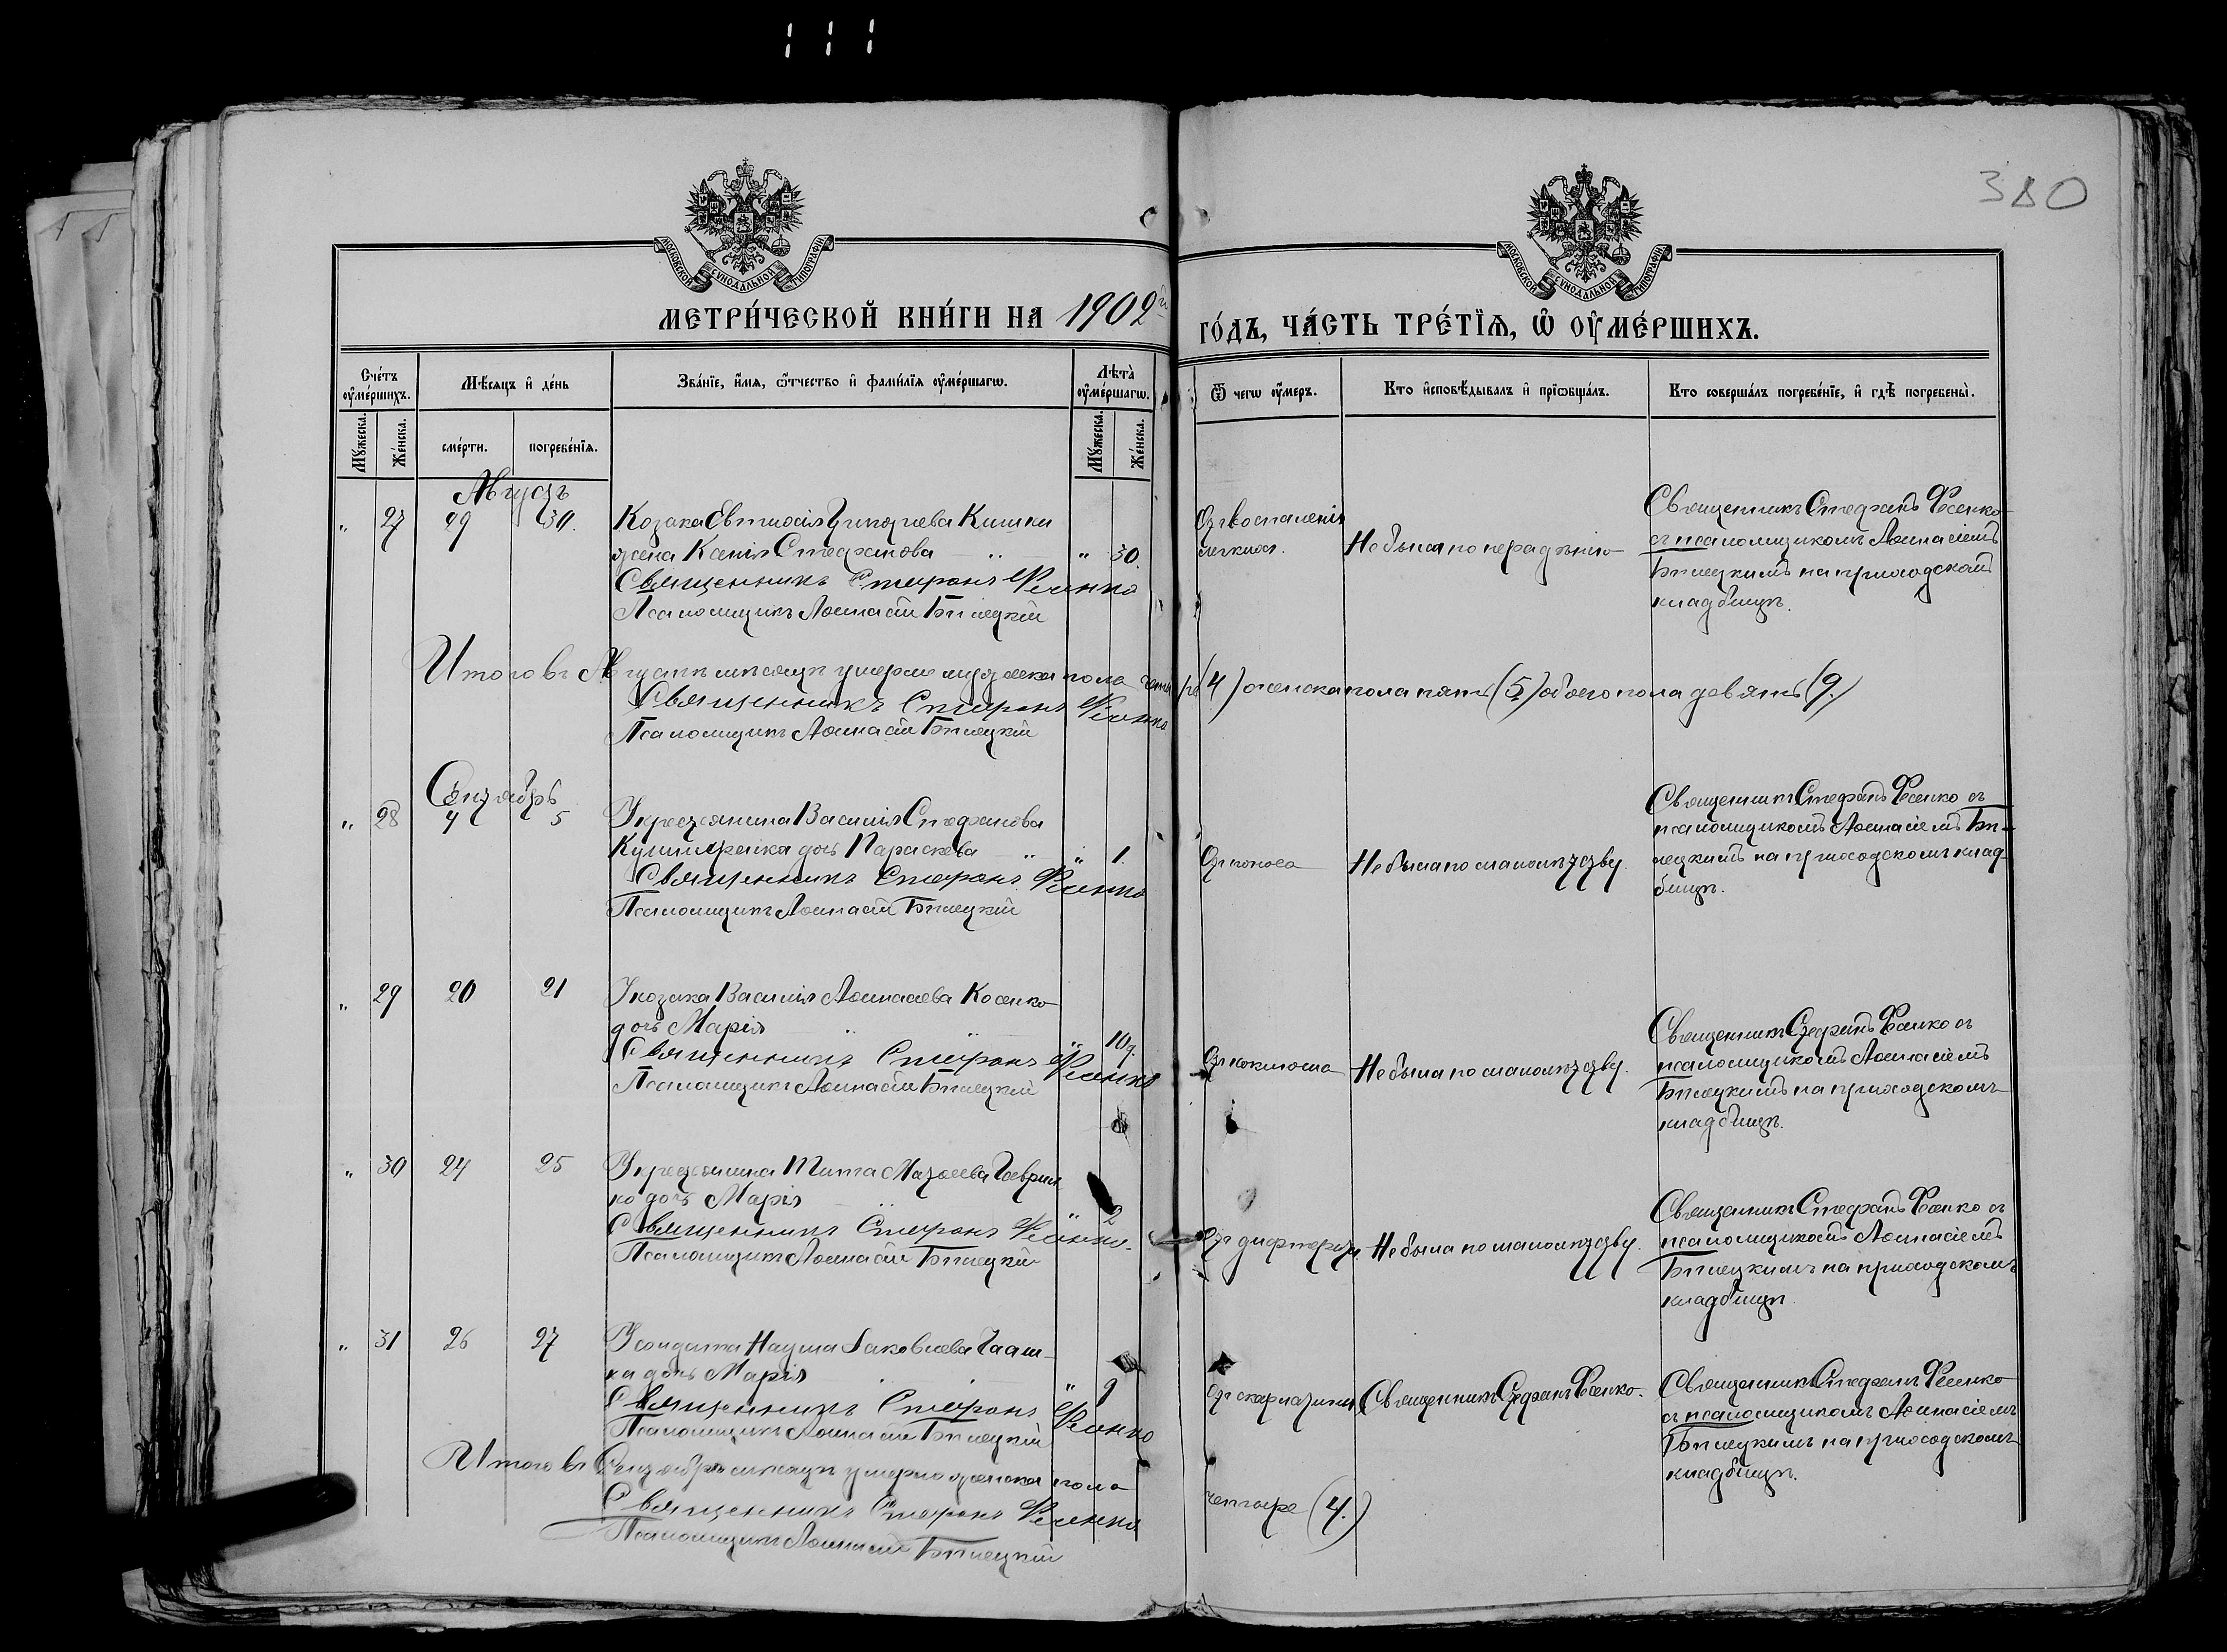 380
МОСКОВСКОЙ СѴНОДАЛЬНОЙ ТИПОГРАФІИ
МОСКОВСКОЙ СѴНОДАЛЬНОЙ ТИПОГРАФІИ
МЕТРИ́ЧЕСКОЙ КНИ́ГИ НА 1902й
ГО́ДЪ, ЧА́СТЬ ТРЕ́ТЇѦ, Ѿ ОУ҆МЕ́РШИХЪ.
Сче́тъ оу҆ме́ршихъ.
Мѣ́сяцъ и҆ де́нь
Зва́нїе, и҆́мя, ѻ҆́тчество и҆ фамилїя оу҆ме́ршагѡ.
Лѣта̀ оу҆ме́ршагѡ.
Ѿ чегѡ оу҆́меръ.
Кто и҆сповѣ́дывалъ и҆ прїѡбща́лъ.
Кто соверша́лъ погребе́нїе, и҆ гдѣ̀ погребены̀.
Му́жеска.
Же́нска.
сме́рти.
погребе́нїя.
Му́жеска.
Же́нска.
Августъ
" 27 29 30. Козака Евтихія Григорьева Кишки
жена Ксенія Стефанова " 30.
Священникъ Стефанъ Фесенко
Псаломщикъ Аѳанасій Бѣлецкій
Отъ воспаленія
легкихъ.
Не была по нерадѣнію
Священникъ Стефанъ Фесенко
съ псаломщикомъ Аѳанасіемъ
Бѣлецкимъ на приходскомъ
кладбищѣ.
Итого въ Августѣ мѣсяцѣ умерло мужеска пола четыре (4) женска пола пять (5) обоего пола девять (9.)
Священникъ Стефанъ Фесенко
Псаломщикъ Аѳанасій Бѣлецкій
Сентябрь
" 28 4 5 У крестьянина Василія Стефанова
дочь Параскева " 1.
Священникъ Стефанъ Фесенко
Псаломщикъ Аѳанасій Бѣлецкій
Отъ поноса
Не была по малолѣтству.
Священникъ Стефанъ Фесенко съ
псаломщикомъ Аѳанасіемъ Бѣ-
лецкимъ на приходскомъ клад-
бищѣ.
" 29 20 21 У козака Василія Аѳанасьева Косенко
дочь Марія " 10
Священникъ Стефанъ Фесенко
Псаломщикъ Аѳанасій Бѣлецкій
Отъ коклюша
Не была по малолѣтству.
Священникъ Стефанъ Фесенко съ
псаломщикомъ Аѳанасіемъ
Бѣлецкимъ на приходскомъ
кладбищѣ.
" 30 24 25 У крестьянина Тита Матѳеева Гаврил
ко дочь Марія " 2
Священникъ Стефанъ Фесенко.
Псаломщикъ Аѳанасій Бѣлецкій
Отъ дифтерита.
Не была по малолѣтству.
Священникъ Стефанъ Фесенко съ
псаломщикомъ Аѳанасіемъ
Бѣлецкимъ на приходскомъ
кладбищѣ.
" 31 26 27 У солдата Наума Іаковлева
дочь Марія " 9
Священникъ Стефанъ Фесенко
Псаломщикъ Аѳанасій Бѣлецкій
Отъ скарлатины
Священникъ Стефанъ Фесенко.
Священникъ Стефанъ Фесенко
съ псаломщикомъ Аѳанасіемъ
Бѣлецкимъ на приходскомъ
кладбищѣ.
Итого въ Сентябрѣ мѣсяцѣ умерло женска пола
четыре (4.)
Священникъ Стефанъ Фесенко
Псаломщикъ Аѳанасій Бѣлецкій